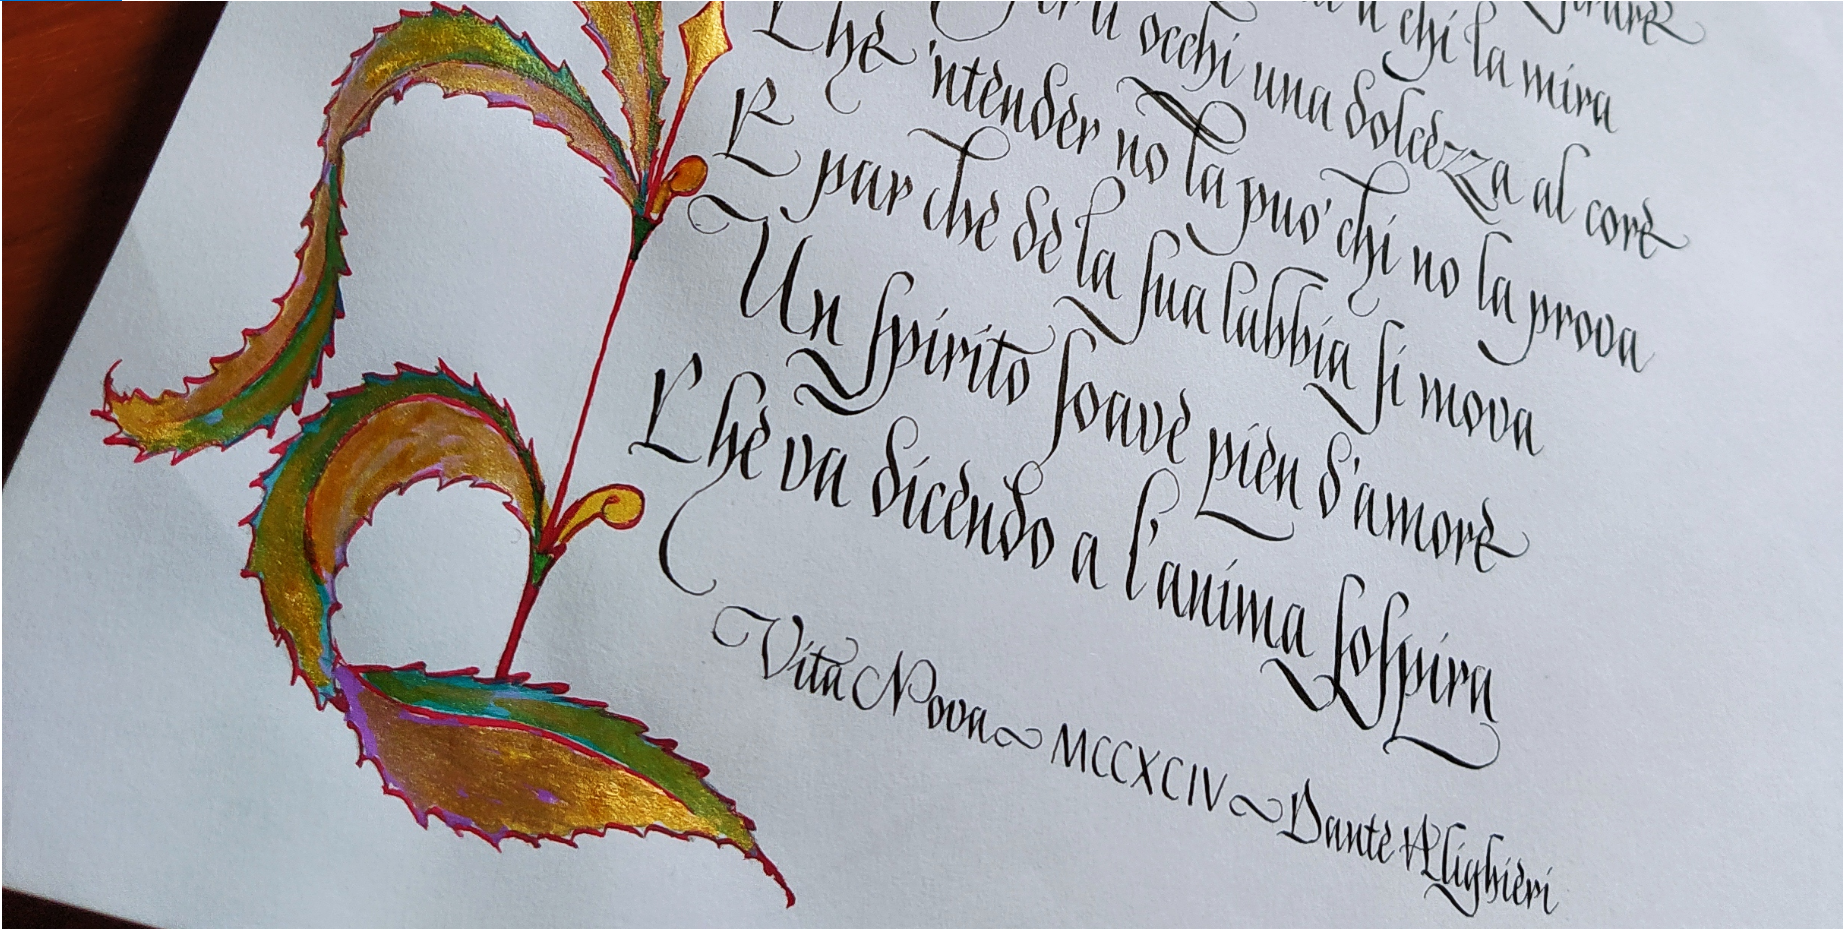 chi la mira
occhi una dolcezza al core
Che 'ntender no la puo' chi no la prova
E par che de la sua labbia si mova
Un spirito soave pien d'amore
Che va dicendo a l'anima Sospira
Vita Nova ~ MCCXCIV ~ Dante Alighieri